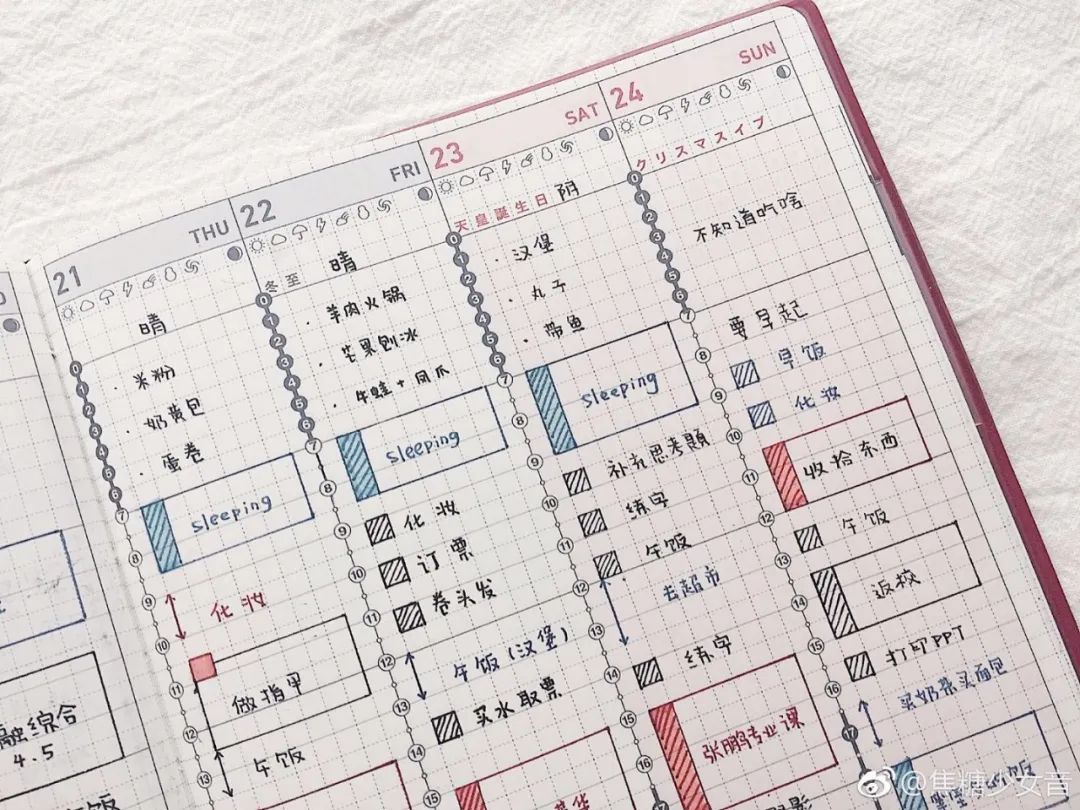 21 THU
晴
· 米粉
· 奶黄包
· 蛋卷
0
1
2
3
4
5
6
7
8
9
10
11
12
13
sleeping
化妆
做指甲
午饭
22 FRI
冬至 晴
· 羊肉火锅
· 芒果刨冰
· 牛蛙+凤爪
0
1
2
3
4
5
6
7
8
9
10
11
12
13
14
15
sleeping
化妆
订票
卷头发
午饭(汉堡)
买水取票
23 SAT
天皇誕生日 阴
· 汉堡
· 丸子
· 带鱼
0
1
2
3
4
5
6
7
8
9
10
11
12
13
14
15
16
17
sleeping
补充思考題
练字
午饭
去超市
练字
张鹏专业课
24 SUN
クリスマスイブ
不知道吃啥
0
1
2
3
4
5
6
7
8
9
10
11
12
13
14
15
16
17
要早起
早饭
化妆
收拾东西
午饭
返校
打印PPT
买奶茶买面包
融综合
4.5
@焦糖少女音